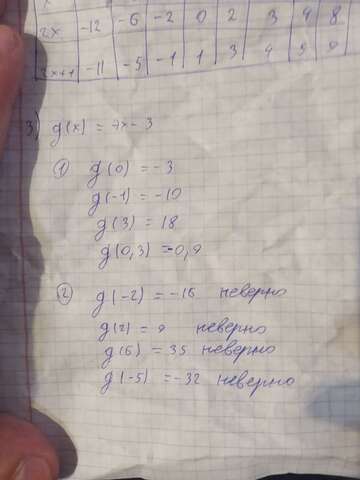 x
2x -12 -6 -2 0 2 3 4 8
2x+1 -11 -5 -1 1 3 4 5 9
3) g(x) = 7x - 3
① g(0) = -3
g(-1) = -10
g(3) = 18
g(0,3) = -0,9
② g(-2) = -16 неверно
g(2) = 9 неверно
g(6) = 35 неверно
g(-5) = -32 неверно